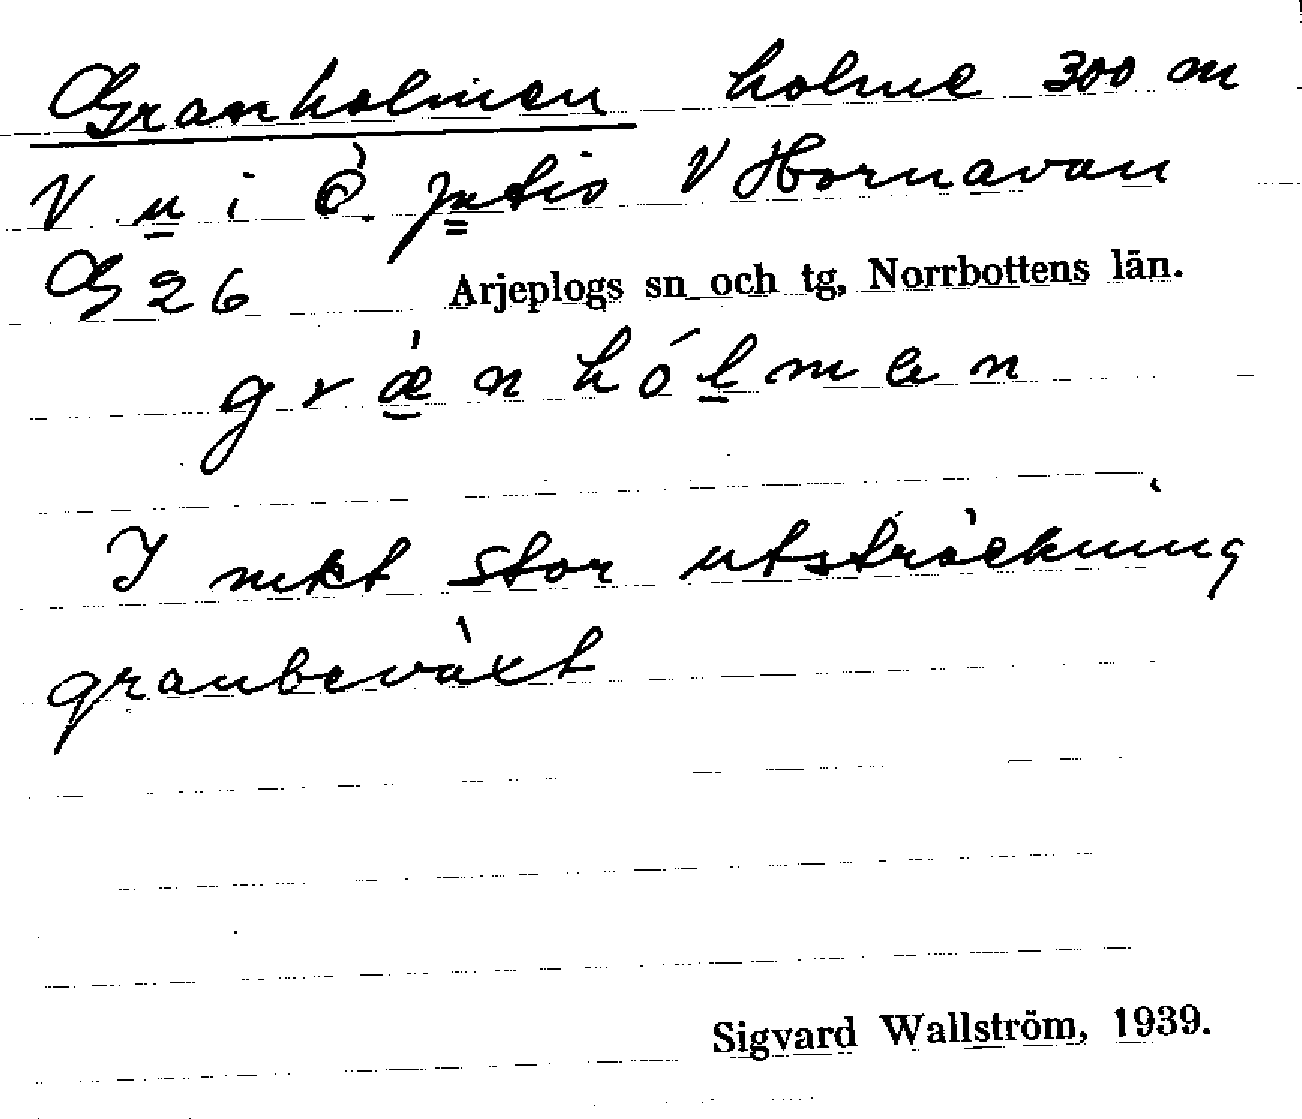 Granholmen holme 300 m
V u i Ö. Jutis V Hornavan
G 26 Arjeplogs sn och tg, Norrbottens län.
græ̀nhólmen
I mkt stor utsträckning
granbeväxt
Sigvard Wallström, 1939.